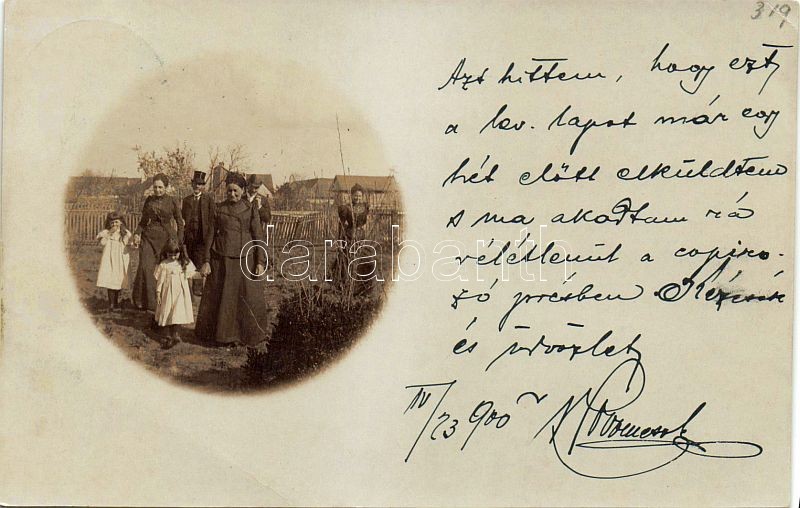 319
Azt hittem, hogy ezt
a lev. lapot már egy
hét előtt elküldtem
s ma akadtam rá
véletlenül a copiro-
zó présben. Kézcsók
és üdvözlet
IV/23 900
darabanth.com